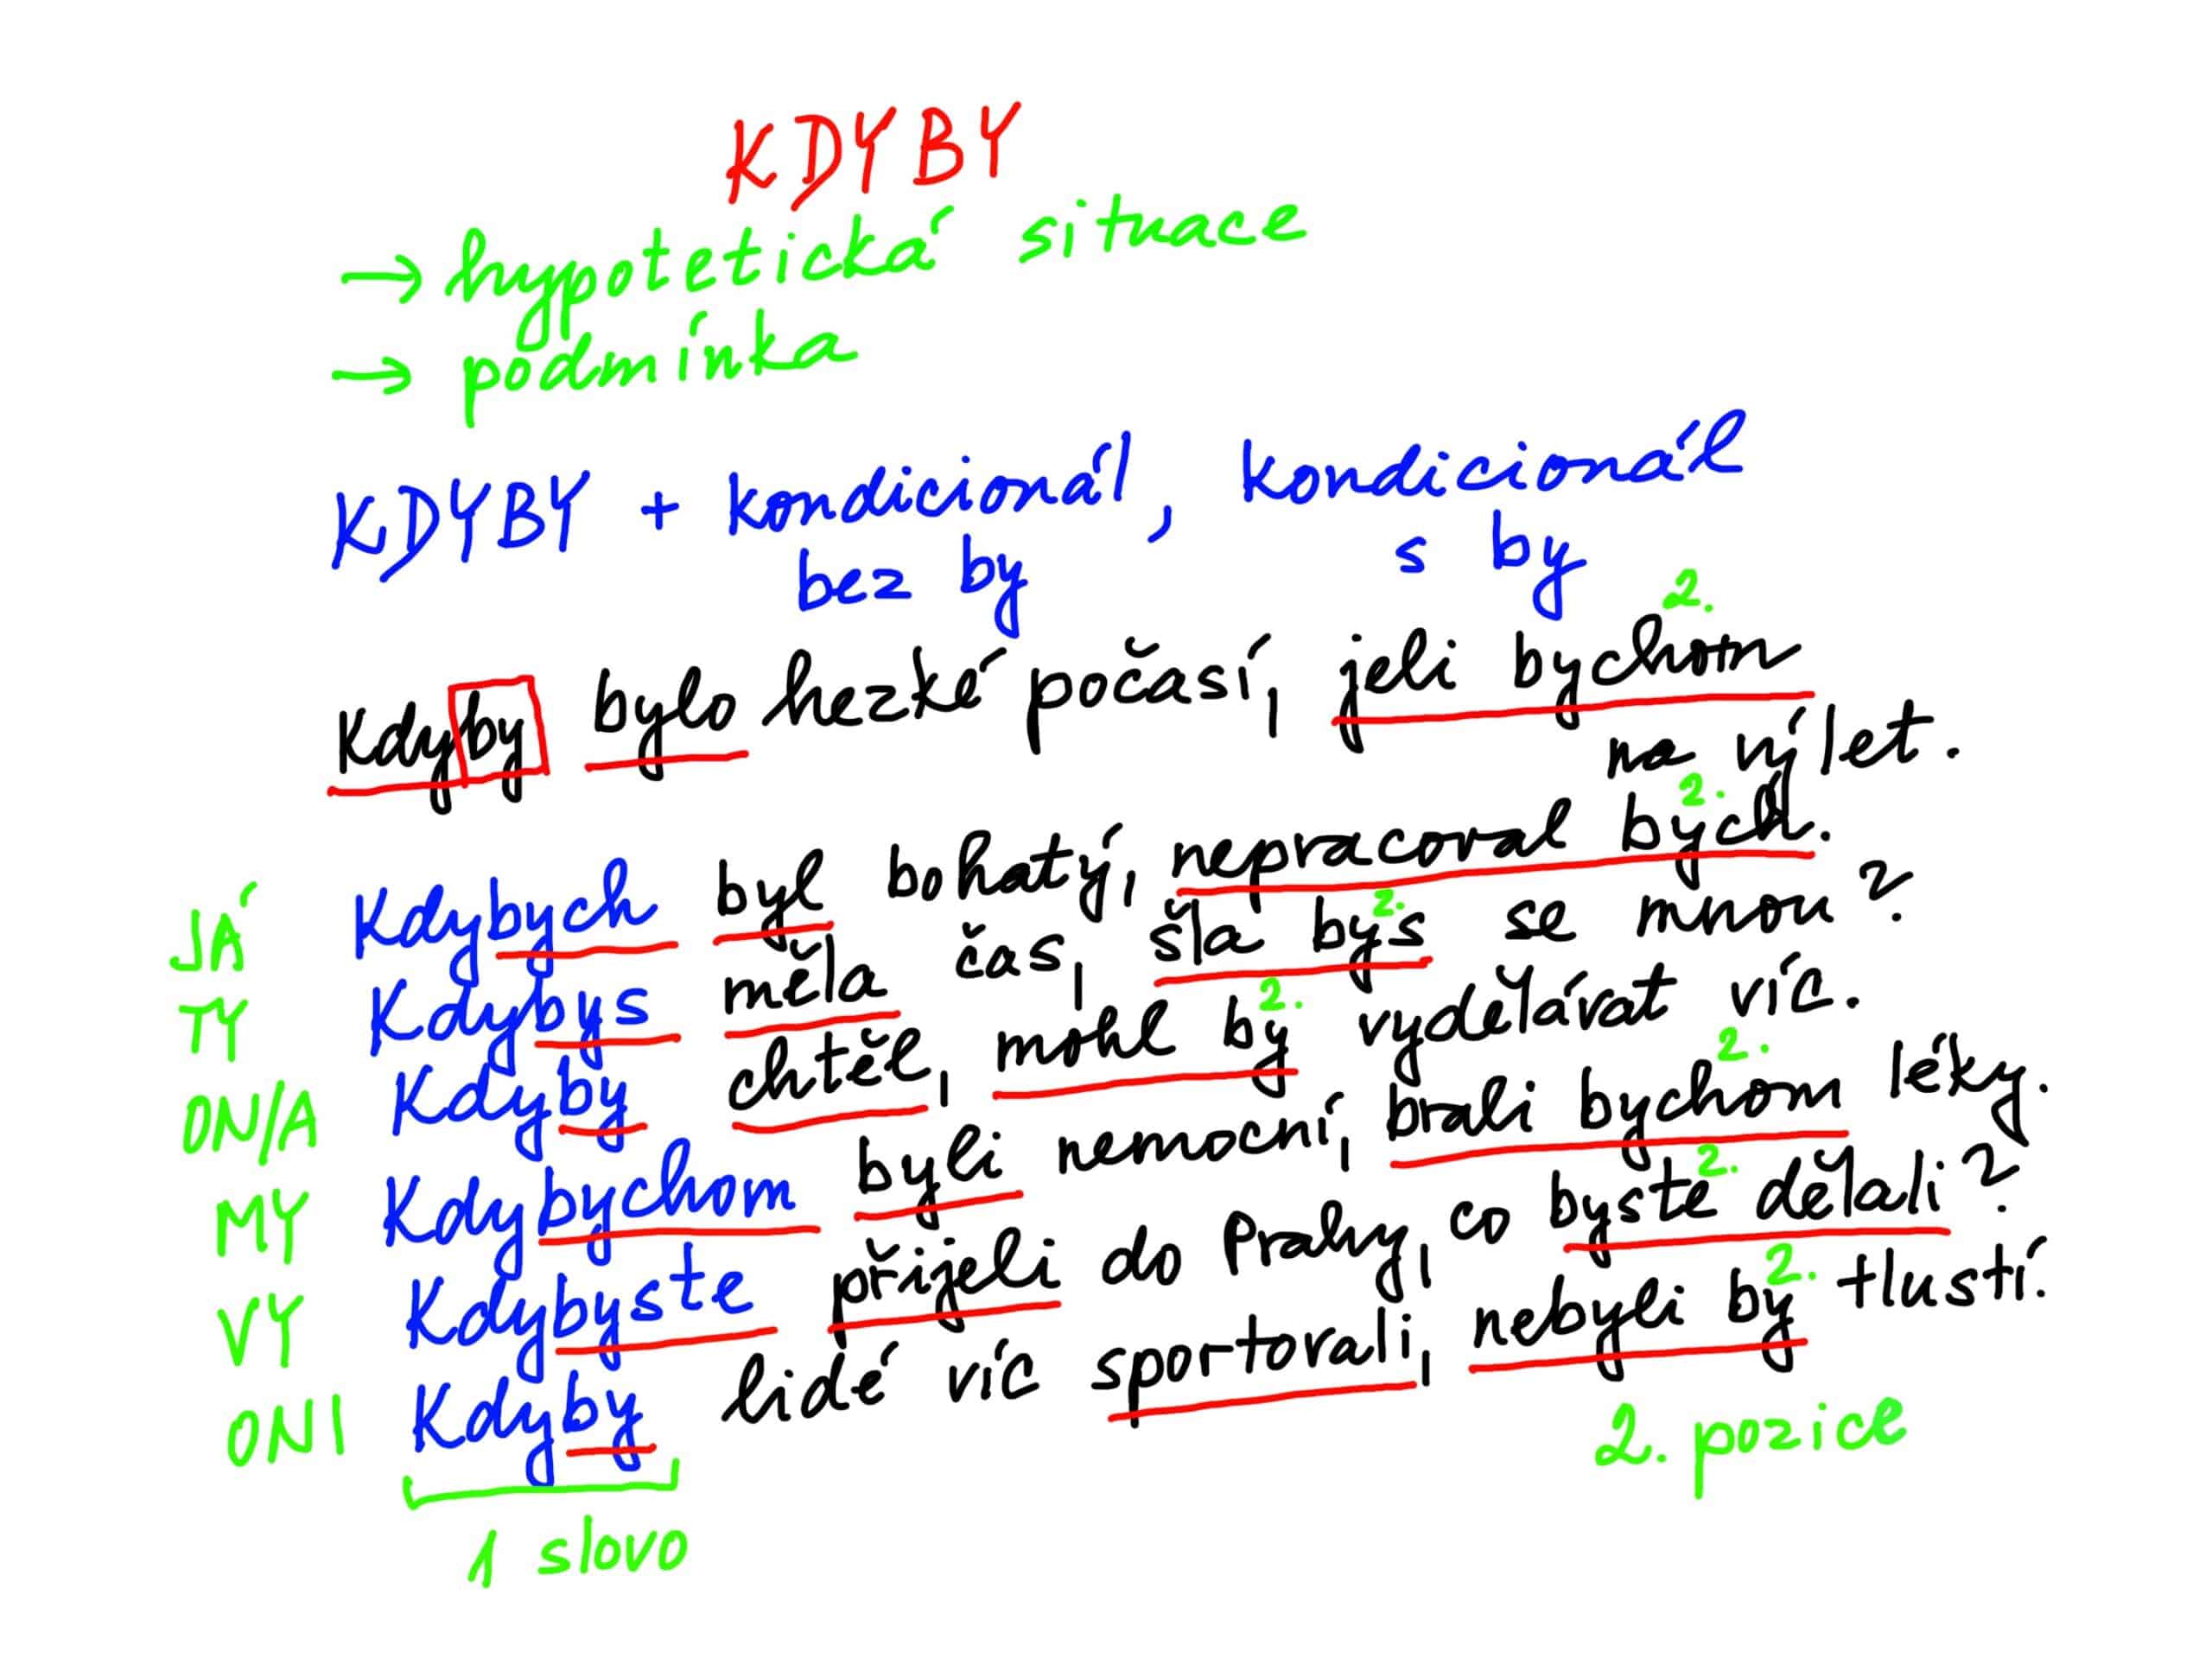 KDYBY
→ hypotetická situace
→ podmínka
KDYBY + kondicionál, kondicionál
bez by s by
2.
Kdyby bylo hezké počasí, jeli bychom
na výlet.
2.
JÁ Kdybych byl bohatý, nepracoval bych.
2.
TY Kdybys měla čas, šla bys se mnou?
2.
ON/A Kdyby chtěl, mohl by vydělávat víc.
2.
MY Kdybychom byli nemocní, brali bychom léky.
2.
VY Kdybyste přijeli do Prahy, co byste dělali?
2.
ONI Kdyby lidé víc sportovali, nebyli by tlustí.
2. pozice
1 slovo